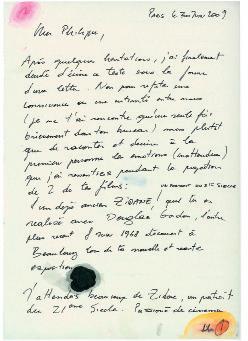 Paris le 3 Juin 2009
Mon Philippe,
Après quelques hésitations, j'ai finalement
décidé d'écrire ce texte sous la forme
d'une lettre. Non pour refléter une
connaissance ou une intimité entre nous
(je ne t'ai rencontré qu'une seule fois
brièvement dans ton bureau) mais plutôt
que de raconter et décrire à la
première personne les émotions (inattendues)
que j'ai ressenties pendant la projection
de 2 de tes films:
UN PORTRAIT DU 21e SIECLE
l'un déjà ancien ZIDANE! que tu as
réalisé avec Douglas Gordon, l'autre
plus récent 8 juin 1968 découvert à
Beaubourg lors de ta nouvelle et
exposition
J'attendais beaucoup de Zidane, un portrait
du 21ème Siècle. Passionné de cinéma